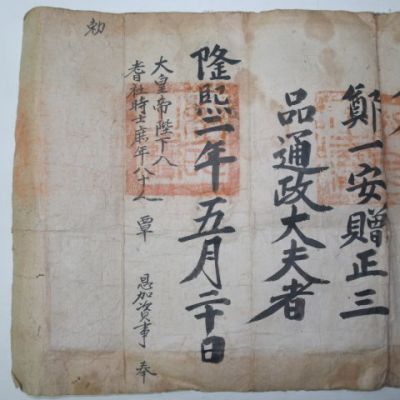 鄭一安贈正三
品通政大夫者
隆熙二年五月二十日
大皇帝陛下入
耆社時士庶年八十人 覃 恩加資事 奉
勅